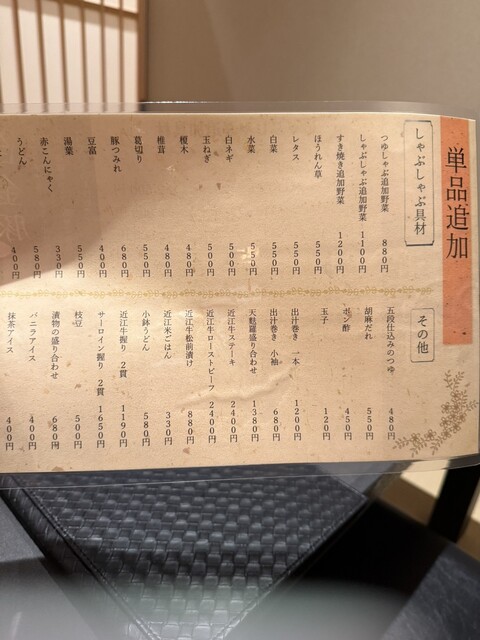 単品追加
しゃぶしゃぶ具材
つゆしゃぶ追加野菜 880円
しゃぶしゃぶ追加野菜 1100円
すき焼き追加野菜 1200円
ほうれん草 550円
レタス 550円
白菜 550円
水菜 550円
白ネギ 500円
玉ねぎ 500円
榎木 480円
椎茸 480円
葛切り 550円
豚つみれ 680円
豆富 400円
湯葉 550円
赤こんにゃく 330円
うどん 580円
400円
その他
五段仕込みのつゆ 480円
胡麻だれ 550円
ポン酢 450円
玉子 120円
出汁巻き 一本 1200円
出汁巻き 小袖 680円
天麩羅盛り合わせ 1380円
近江牛ステーキ 2400円
近江牛ローストビーフ 2400円
近江牛松前漬け 880円
近江米ごはん 330円
小鉢うどん 580円
近江牛握り 2貫 1190円
サーロイン握り 2貫 1650円
枝豆 500円
漬物の盛り合わせ 680円
バニラアイス 400円
抹茶アイス 400円